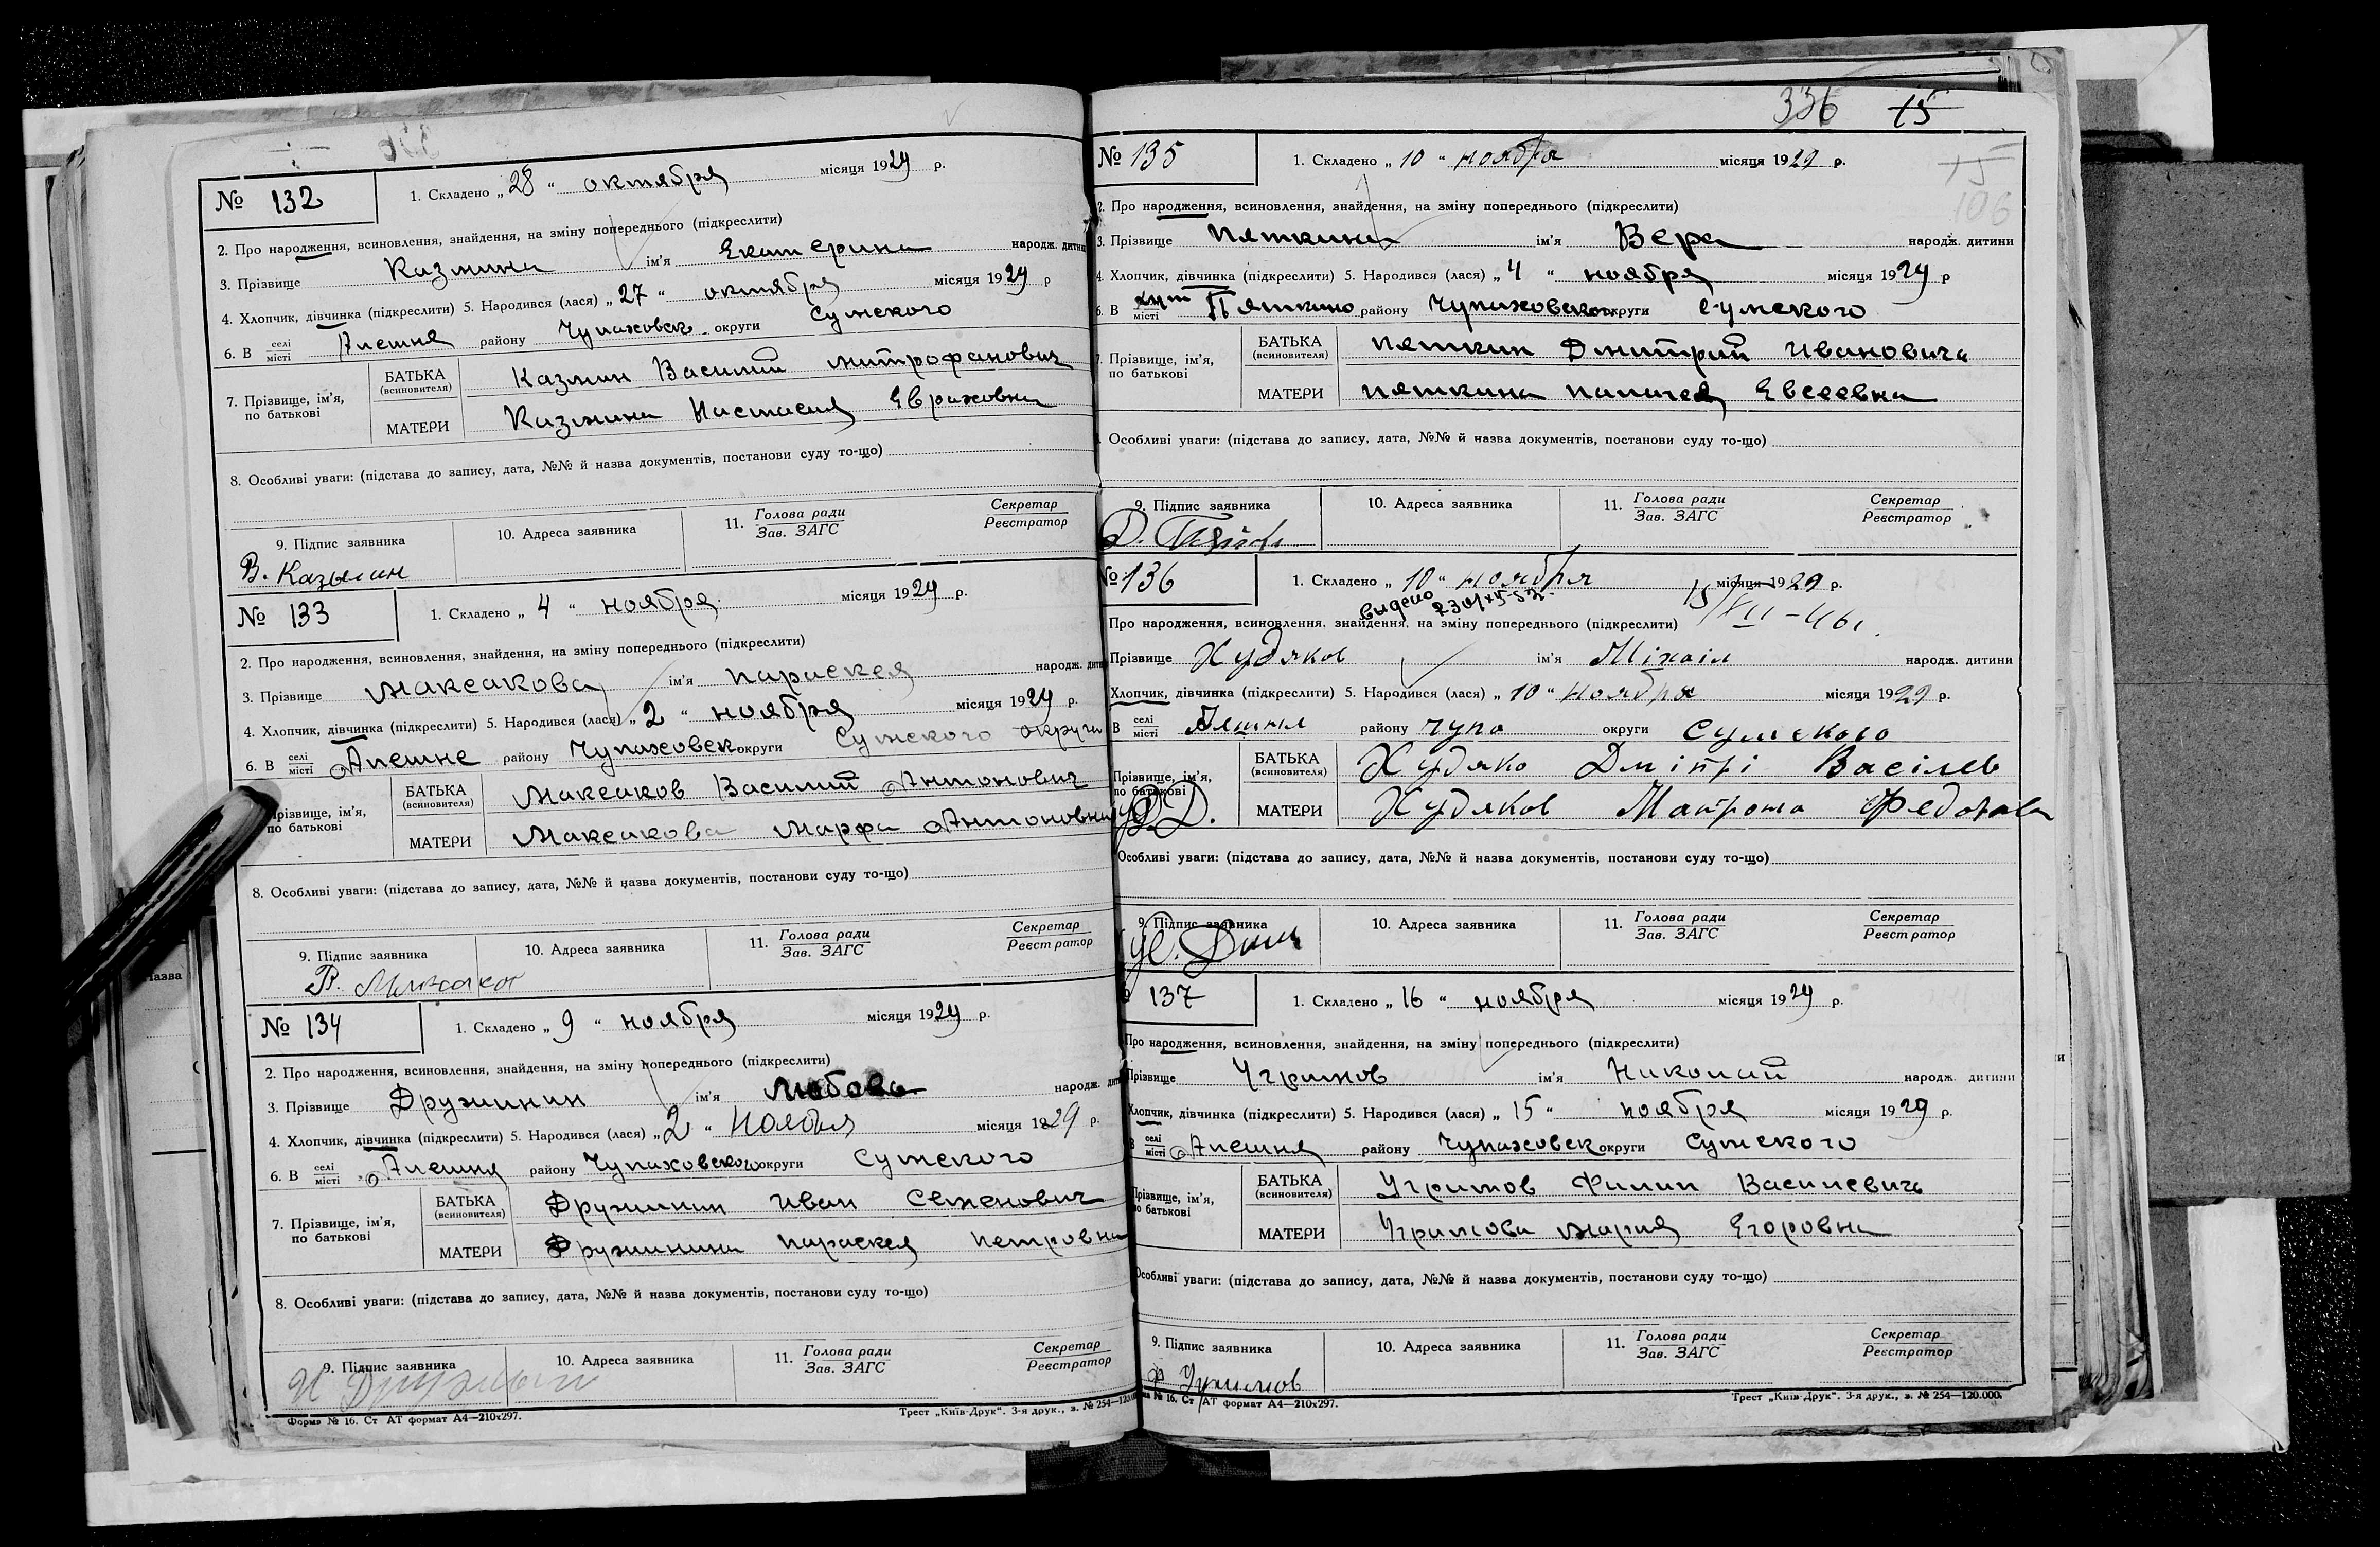 № 132
1. Складено „ 28 “ октября місяця 1929 р.
2. Про народження, всиновлення, знайдення, на зміну попереднього (підкреслити)
3. Прізвище Казмина ім'я Екатерина народж. дитини
4. Хлопчик, дівчинка (підкреслити) 5. Народився (лася) „ 27 “ октября місяця 1929 р
6. В селі місті Алешня району Чупаховск. округи Сумского
7. Прізвище, ім'я, по батькові
БАТЬКА (всиновителя) Казмин Василий Митрофанович
МАТЕРИ Казмина Настасия
8. Особливі уваги: (підстава до запису, дата, №№ й назва документів, постанови суду то-що)
9. Підпис заявника 10. Адреса заявника 11. Голова ради Зав. ЗАГС Секретар Реєстратор
В. Казьмин
№ 133
1. Складено „ 4 “ ноября місяця 1929 р.
2. Про народження, всиновлення, знайдення, на зміну попереднього (підкреслити)
3. Прізвище Максакова ім'я Параскея народж. дитини
4. Хлопчик, дівчинка (підкреслити) 5. Народився (лася) „ 2 “ ноября місяця 1929 р.
6. В селі місті Алешне району Чупаховск округи Сумского округи
Прізвище, ім'я, по батькові
БАТЬКА (всиновителя) Максаков Василий Антонович
МАТЕРИ Максакова Марфа Антоновна
8. Особливі уваги: (підстава до запису, дата, №№ й назва документів, постанови суду то-що)
9. Підпис заявника 10. Адреса заявника 11. Голова ради Зав. ЗАГС Секретар Реєстратор
В.
№ 134
1. Складено „ 9 “ ноября місяця 1929 р.
2. Про народження, всиновлення, знайдення, на зміну попереднього (підкреслити)
3. Прізвище Дружинин ім'я Любовь народж. дитини
4. Хлопчик, дівчинка (підкреслити) 5. Народився (лася) „ 2 “ місяця 1929 р.
6. В селі місті Алешня району Чупаховского округи Сумского
7. Прізвище, ім'я, по батькові
БАТЬКА (всиновителя) Дружинин Иван Семенович
МАТЕРИ Дружинина Параскея Петровна
8. Особливі уваги: (підстава до запису, дата, №№ й назва документів, постанови суду то-що)
9. Підпис заявника 10. Адреса заявника 11. Голова ради Зав. ЗАГС Секретар Реєстратор
И
Форма № 16. Ст АТ формат А4—210х297. Трест „Київ-Друк“. 3-я друк., з. № 254—120.000
336 15
15
106
№ 135
1. Складено „ 10 “ ноября місяця 1929 р.
2. Про народження, всиновлення, знайдення, на зміну попереднього (підкреслити)
3. Прізвище Пяткина ім'я Вера народж. дитини
4. Хлопчик, дівчинка (підкреслити) 5. Народився (лася) „ 4 “ ноября місяця 1929 р
6. В хут місті Пяткино району Чупаховского округи Сумского
7. Прізвище, ім'я, по батькові
БАТЬКА (всиновителя) Пяткин Дмитрий Ивановичь
МАТЕРИ Пяткина Евсеевна
Особливі уваги: (підстава до запису, дата, №№ й назва документів, постанови суду то-що)
9. Підпис заявника 10. Адреса заявника 11. Голова ради Зав. ЗАГС Секретар Реєстратор
Д.
№ 136
1. Складено „ 10 “ ноября місяця 1929 р.
Про народження, всиновлення, знайдення, на зміну попереднього (підкреслити)
Прізвище Худяков ім'я Міхаіл народж. дитини
Хлопчик, дівчинка (підкреслити) 5. Народився (лася) „ 10 “ ноября місяця 1929 р.
В селі місті Алешня району Чупа округи Сумского
Прізвище, ім'я, по батькові
БАТЬКА (всиновителя) Худяко Дмітрі Васілев
МАТЕРИ Худяков
Особливі уваги: (підстава до запису, дата, №№ й назва документів, постанови суду то-що)
9. Підпис заявника 10. Адреса заявника 11. Голова ради Зав. ЗАГС Секретар Реєстратор
137
1. Складено „ 16 “ ноября місяця 1929 р.
Про народження, всиновлення, знайдення, на зміну попереднього (підкреслити)
Прізвище Угримов ім'я Николай народж. дитини
Хлопчик, дівчинка (підкреслити) 5. Народився (лася) „ 15 “ ноября місяця 1929 р.
В селі місті Алешня району Чупаховск округи Сумского
Прізвище, ім'я, по батькові
БАТЬКА (всиновителя) Угримов Филип Василевичь
МАТЕРИ Угримова Мария Егоровна
Особливі уваги: (підстава до запису, дата, №№ й назва документів, постанови суду то-що)
9. Підпис заявника 10. Адреса заявника 11. Голова ради Зав. ЗАГС Секретар Реєстратор
Ф Угримов
№ 16. Ст АТ формат А4—210х297. Трест „Київ-Друк“. 3-я друк., з. № 254—120.000.